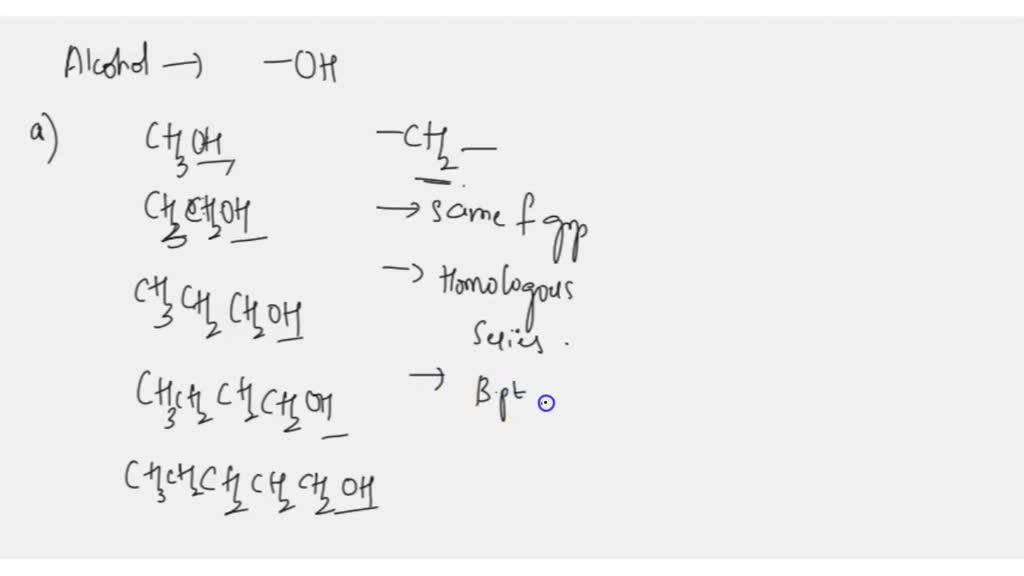 Alcohol → -OH
a) CH₃OH -CH₂-
CH₃CH₂OH → same f grp
CH₃CH₂CH₂OH → Homologous
series.
CH₃CH₂CH₂CH₂OH → B.pt
CH₃CH₂CH₂CH₂CH₂OH